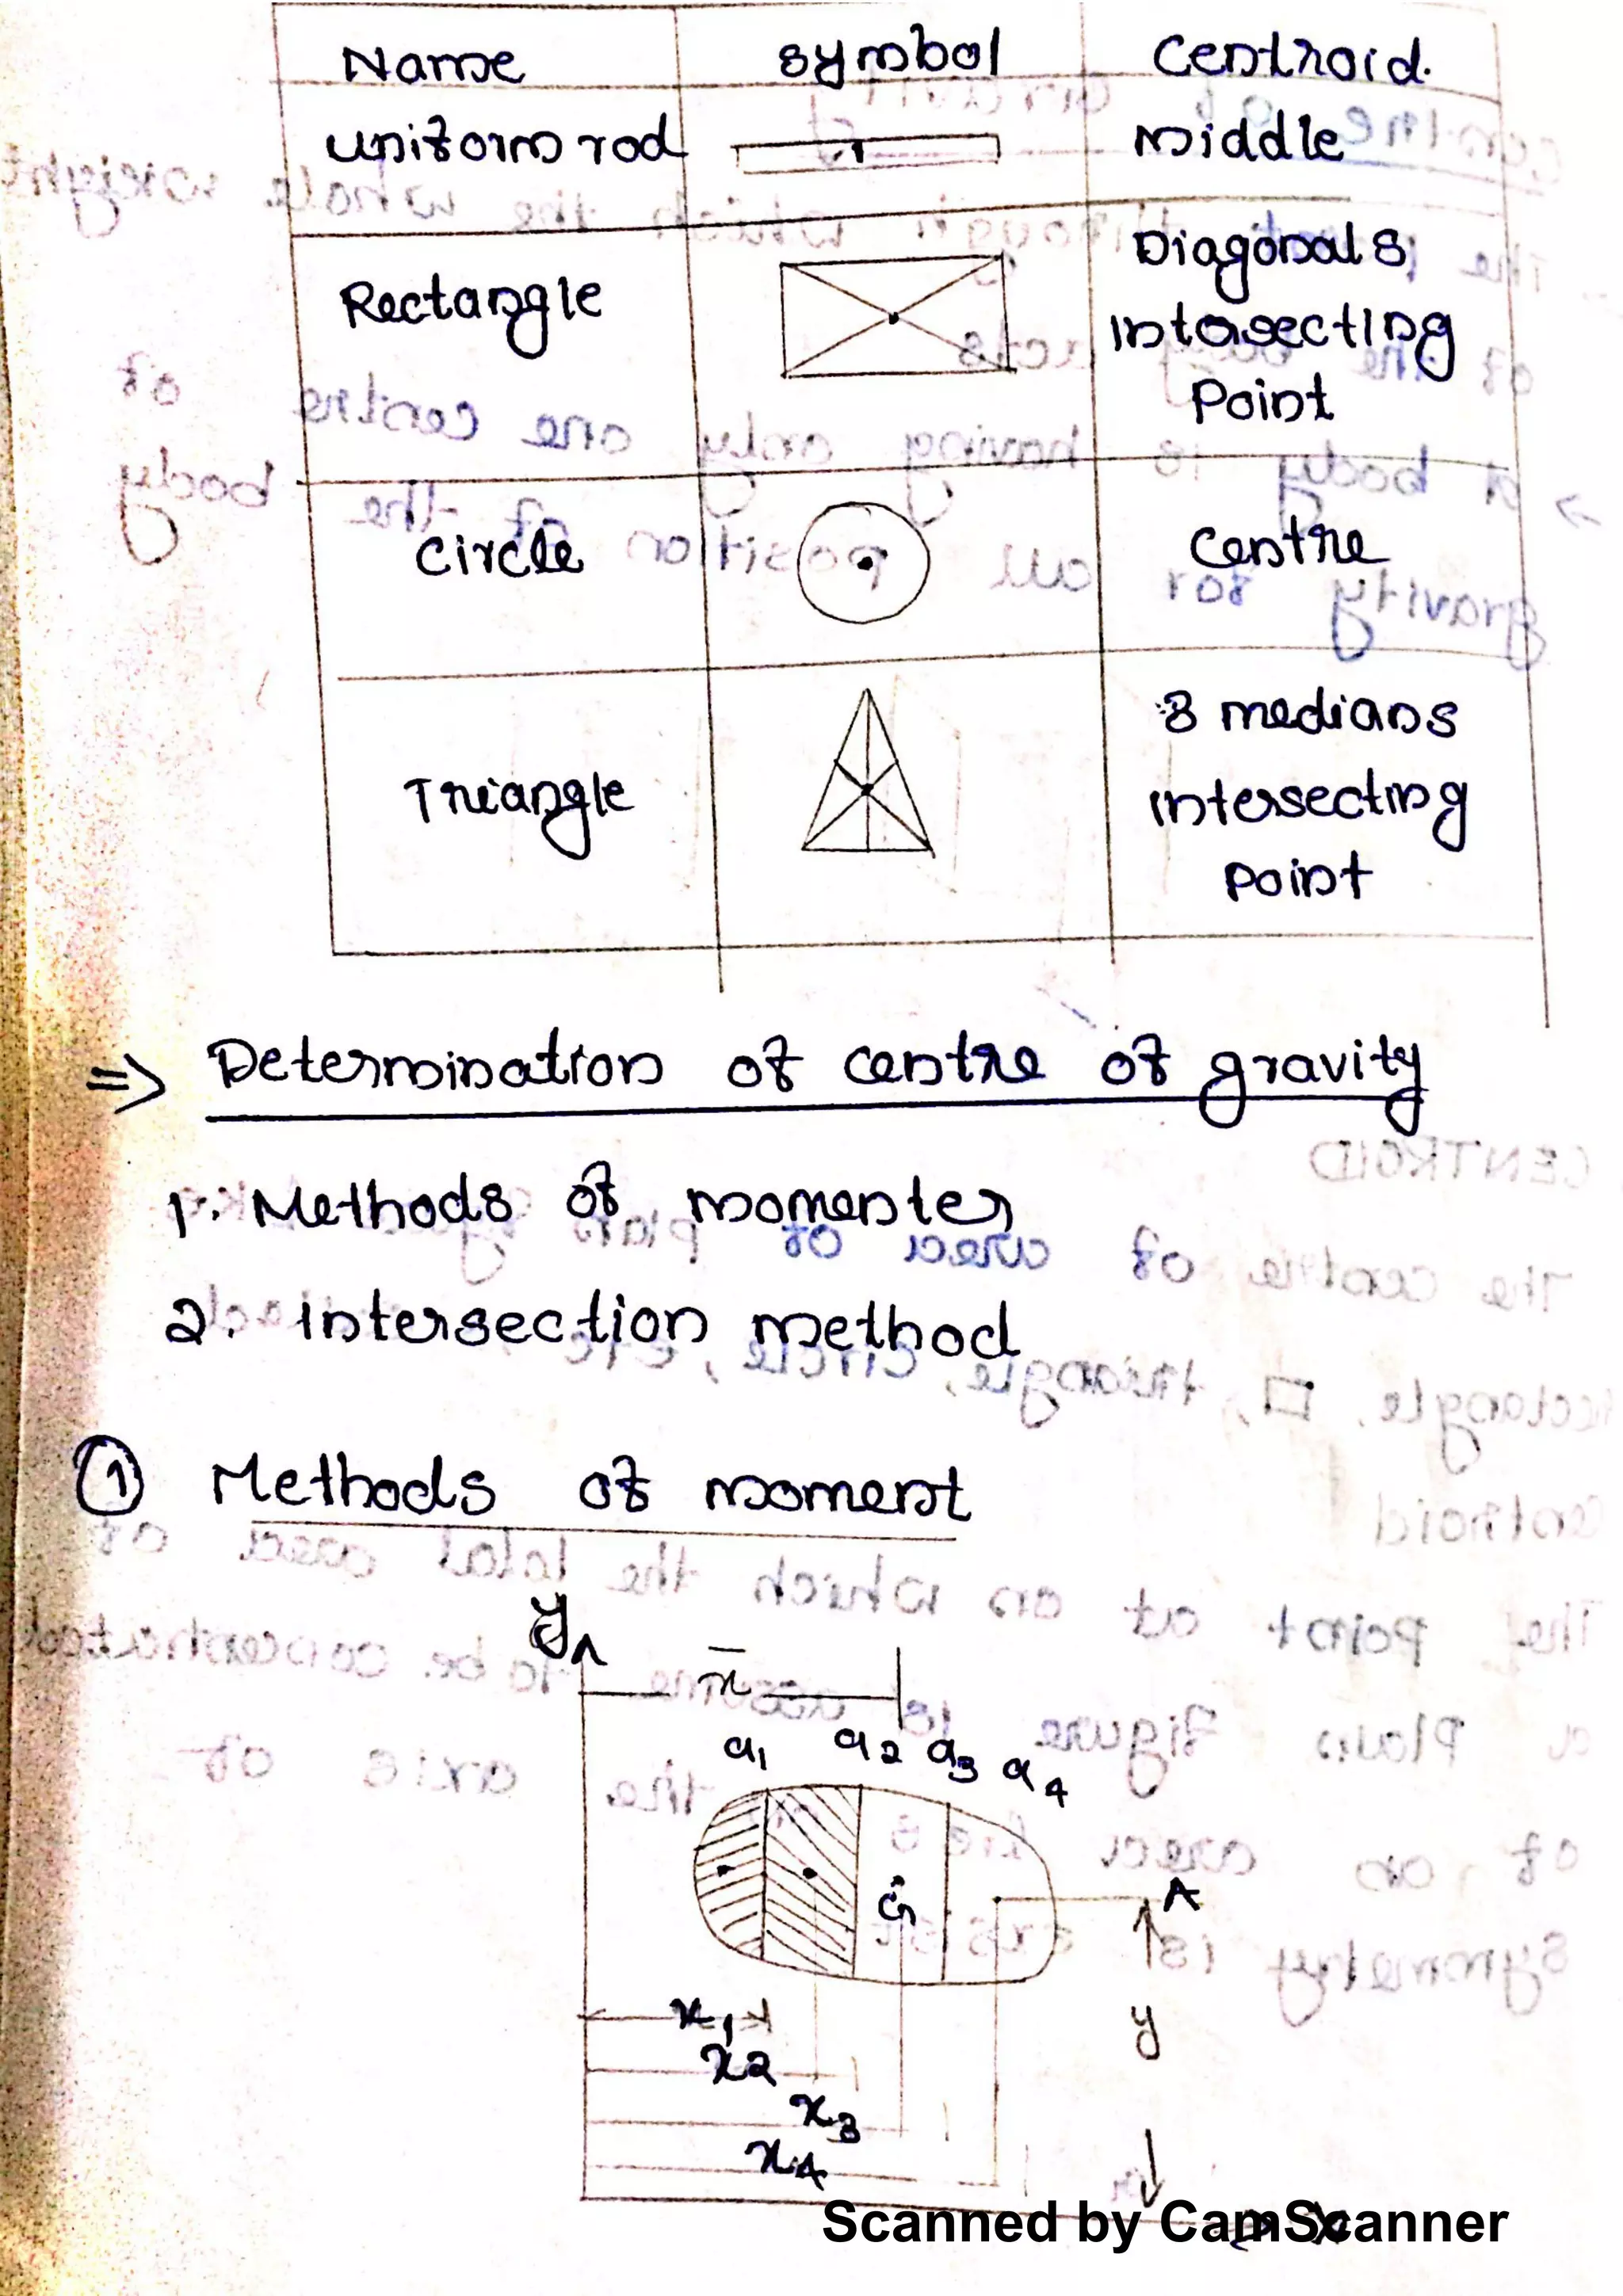 Name symbol Centroid.
uniform rod G middle
Rectangle Diagonals
intersecting
Point
circle centre
Triangle 3 medians
intersecting
point
=> Determination of centre of gravity
1. Methods of momenter
2. Intersection method
① Methods of moment
y
x̄
a1 a2 a3 a4
G A
x1
x2
y
x3
x4
x
Scanned by CamScanner